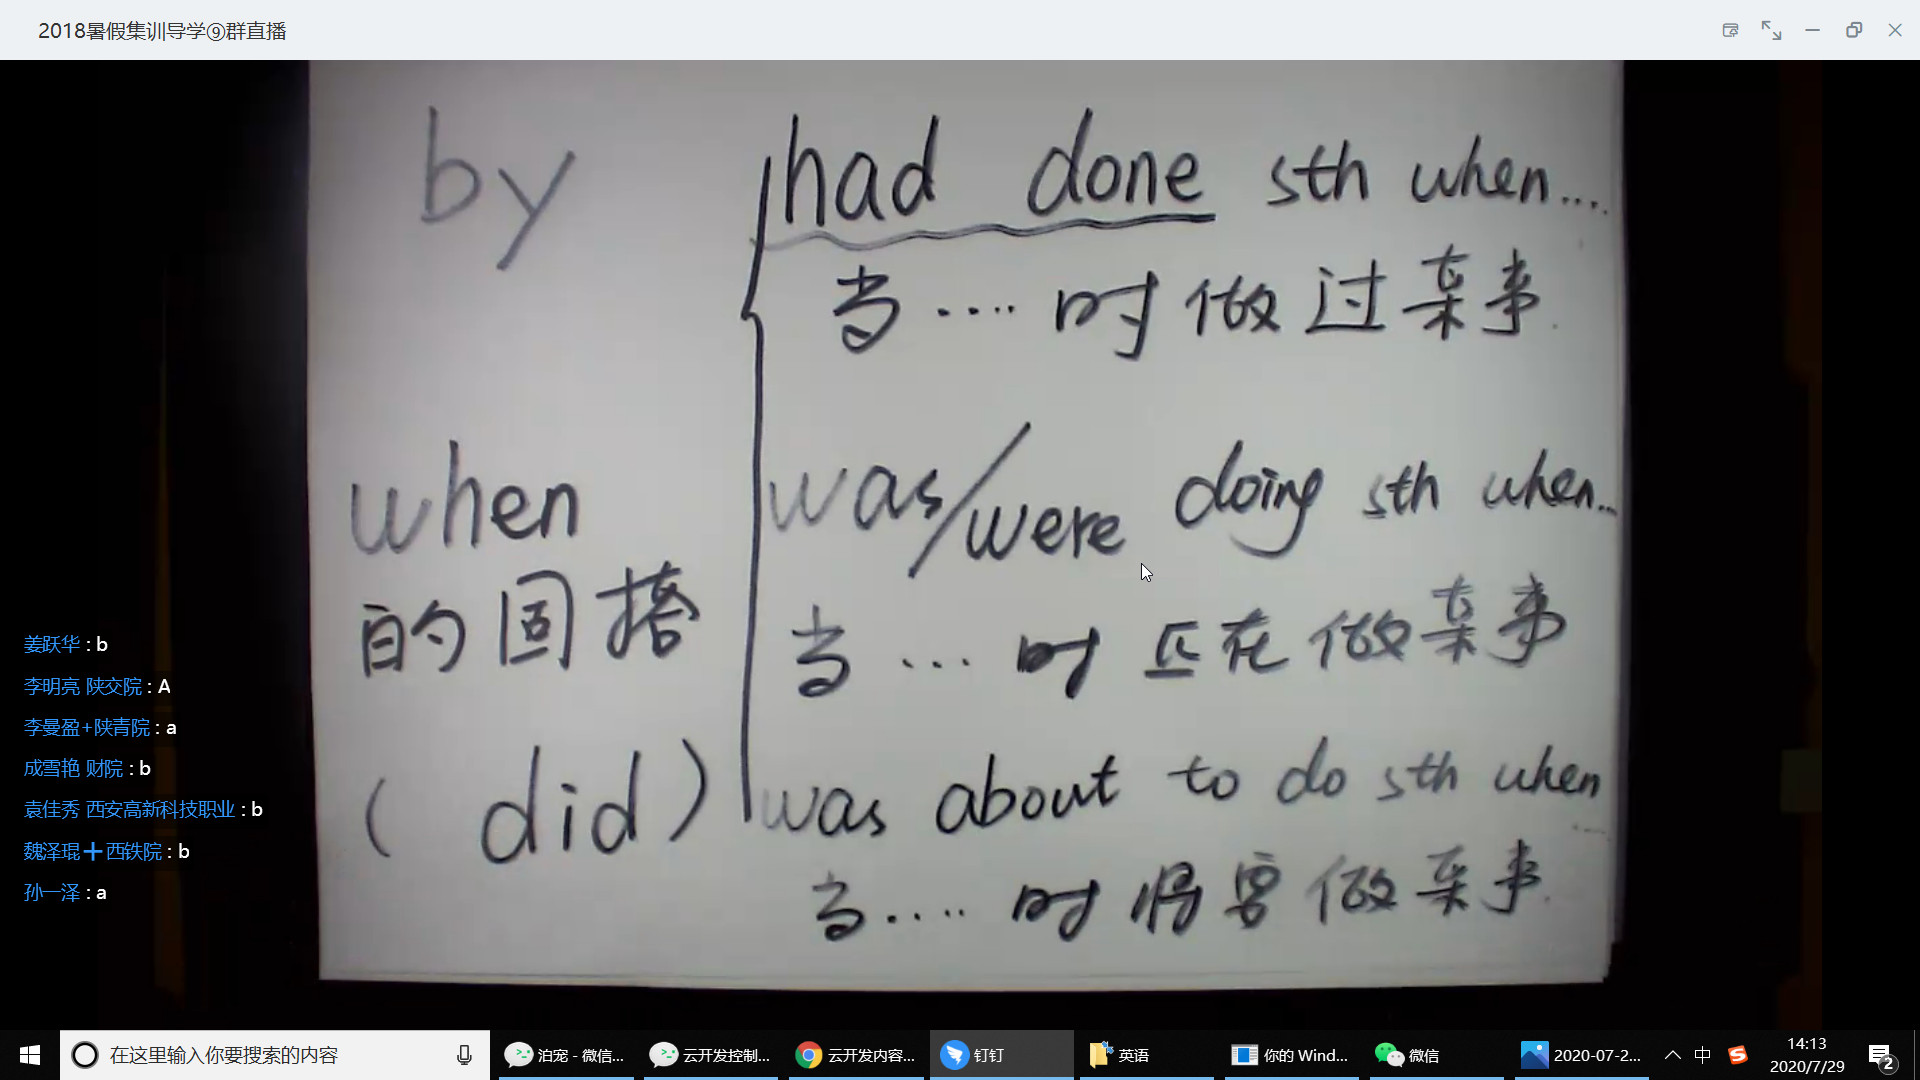 2018暑假集训导学⑨群直播
by
had done sth when....
当....时做过某事.
when
的固搭
( did )
was/were doing sth when...
当...时正在做某事
was about to do sth when
....
当....时将要做某事.
姜跃华 : b
李明亮 陕交院 : A
李曼盈+陕青院 : a
成雪艳 财院 : b
袁佳秀 西安高新科技职业 : b
魏泽琨➕西铁院 : b
孙一泽 : a
在这里输入你要搜索的内容
泊宠 - 微信...
云开发控制...
云开发内容...
钉钉
英语
你的 Wind...
微信
2020-07-2...
中
14:13
2020/7/29
2